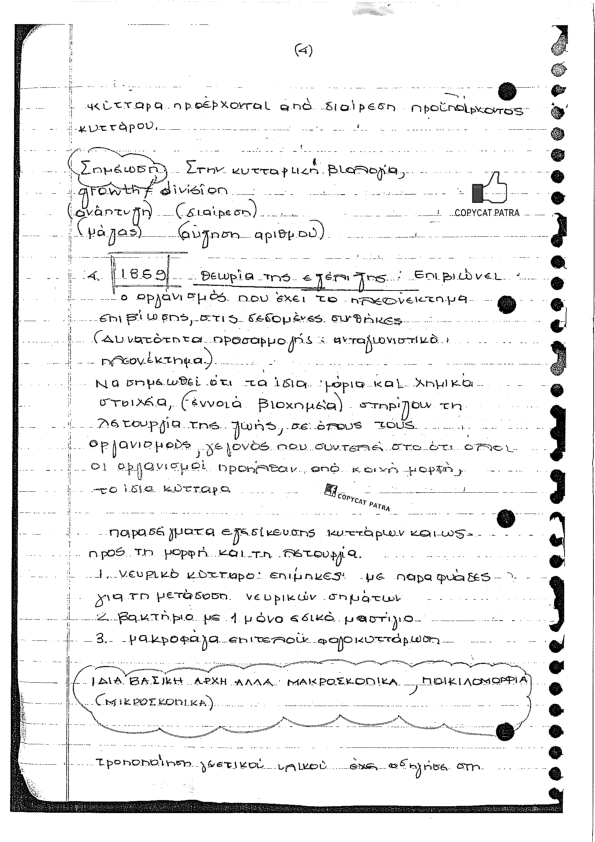 (4)
κύτταρα προέρχονται από διαίρεση προϋπάρχοντος
κυττάρου.
Σημείωση Στην κυτταρική βιολογία,
growth ≠ division
(ανάπτυξη) (διαίρεση)
(μάζας) (αύξηση αριθμού)
COPYCAT PATRA
4. 1859 θεωρία της εξέλιξης: Επιβιώνει
ο οργανισμός που έχει το πλεονέκτημα
επιβίωσης, στις δεδομένες συνθήκες
(Δυνατότητα προσαρμογής: ανταγωνιστικό
πλεονέκτημα.)
Να σημειωθεί ότι τα ίδια μόρια και χημικά
στοιχεία, (έννοια βιοχημεία) στηρίζουν τη
λειτουργία της ζωής, σε όλους τους
οργανισμούς, γεγονός που συντελεί στο ότι όλοι
οι οργανισμοί προήλθαν από κοινή μορφή,
τα ίδια κύτταρα
COPYCAT PATRA
παραδείγματα εξειδίκευσης κυττάρων και ως
προς τη μορφή και τη λειτουργία.
1. νευρικό κύτταρο: επίμηκες με παραφυάδες
για τη μετάδοση νευρικών σημάτων
2. βακτήριο με 1 μόνο ειδικό μαστίγιο
3. μακροφάγα επιτελούν φαγοκυττάρωση
ΙΔΙΑ ΒΑΣΙΚΗ ΑΡΧΗ ΑΛΛΑ ΜΑΚΡΟΣΚΟΠΙΚΑ, ΠΟΙΚΙΛΟΜΟΡΦΙΑ
(ΜΙΚΡΟΣΚΟΠΙΚΑ)
τροποποίηση γενετικού υλικού έχει οδηγήσει στη